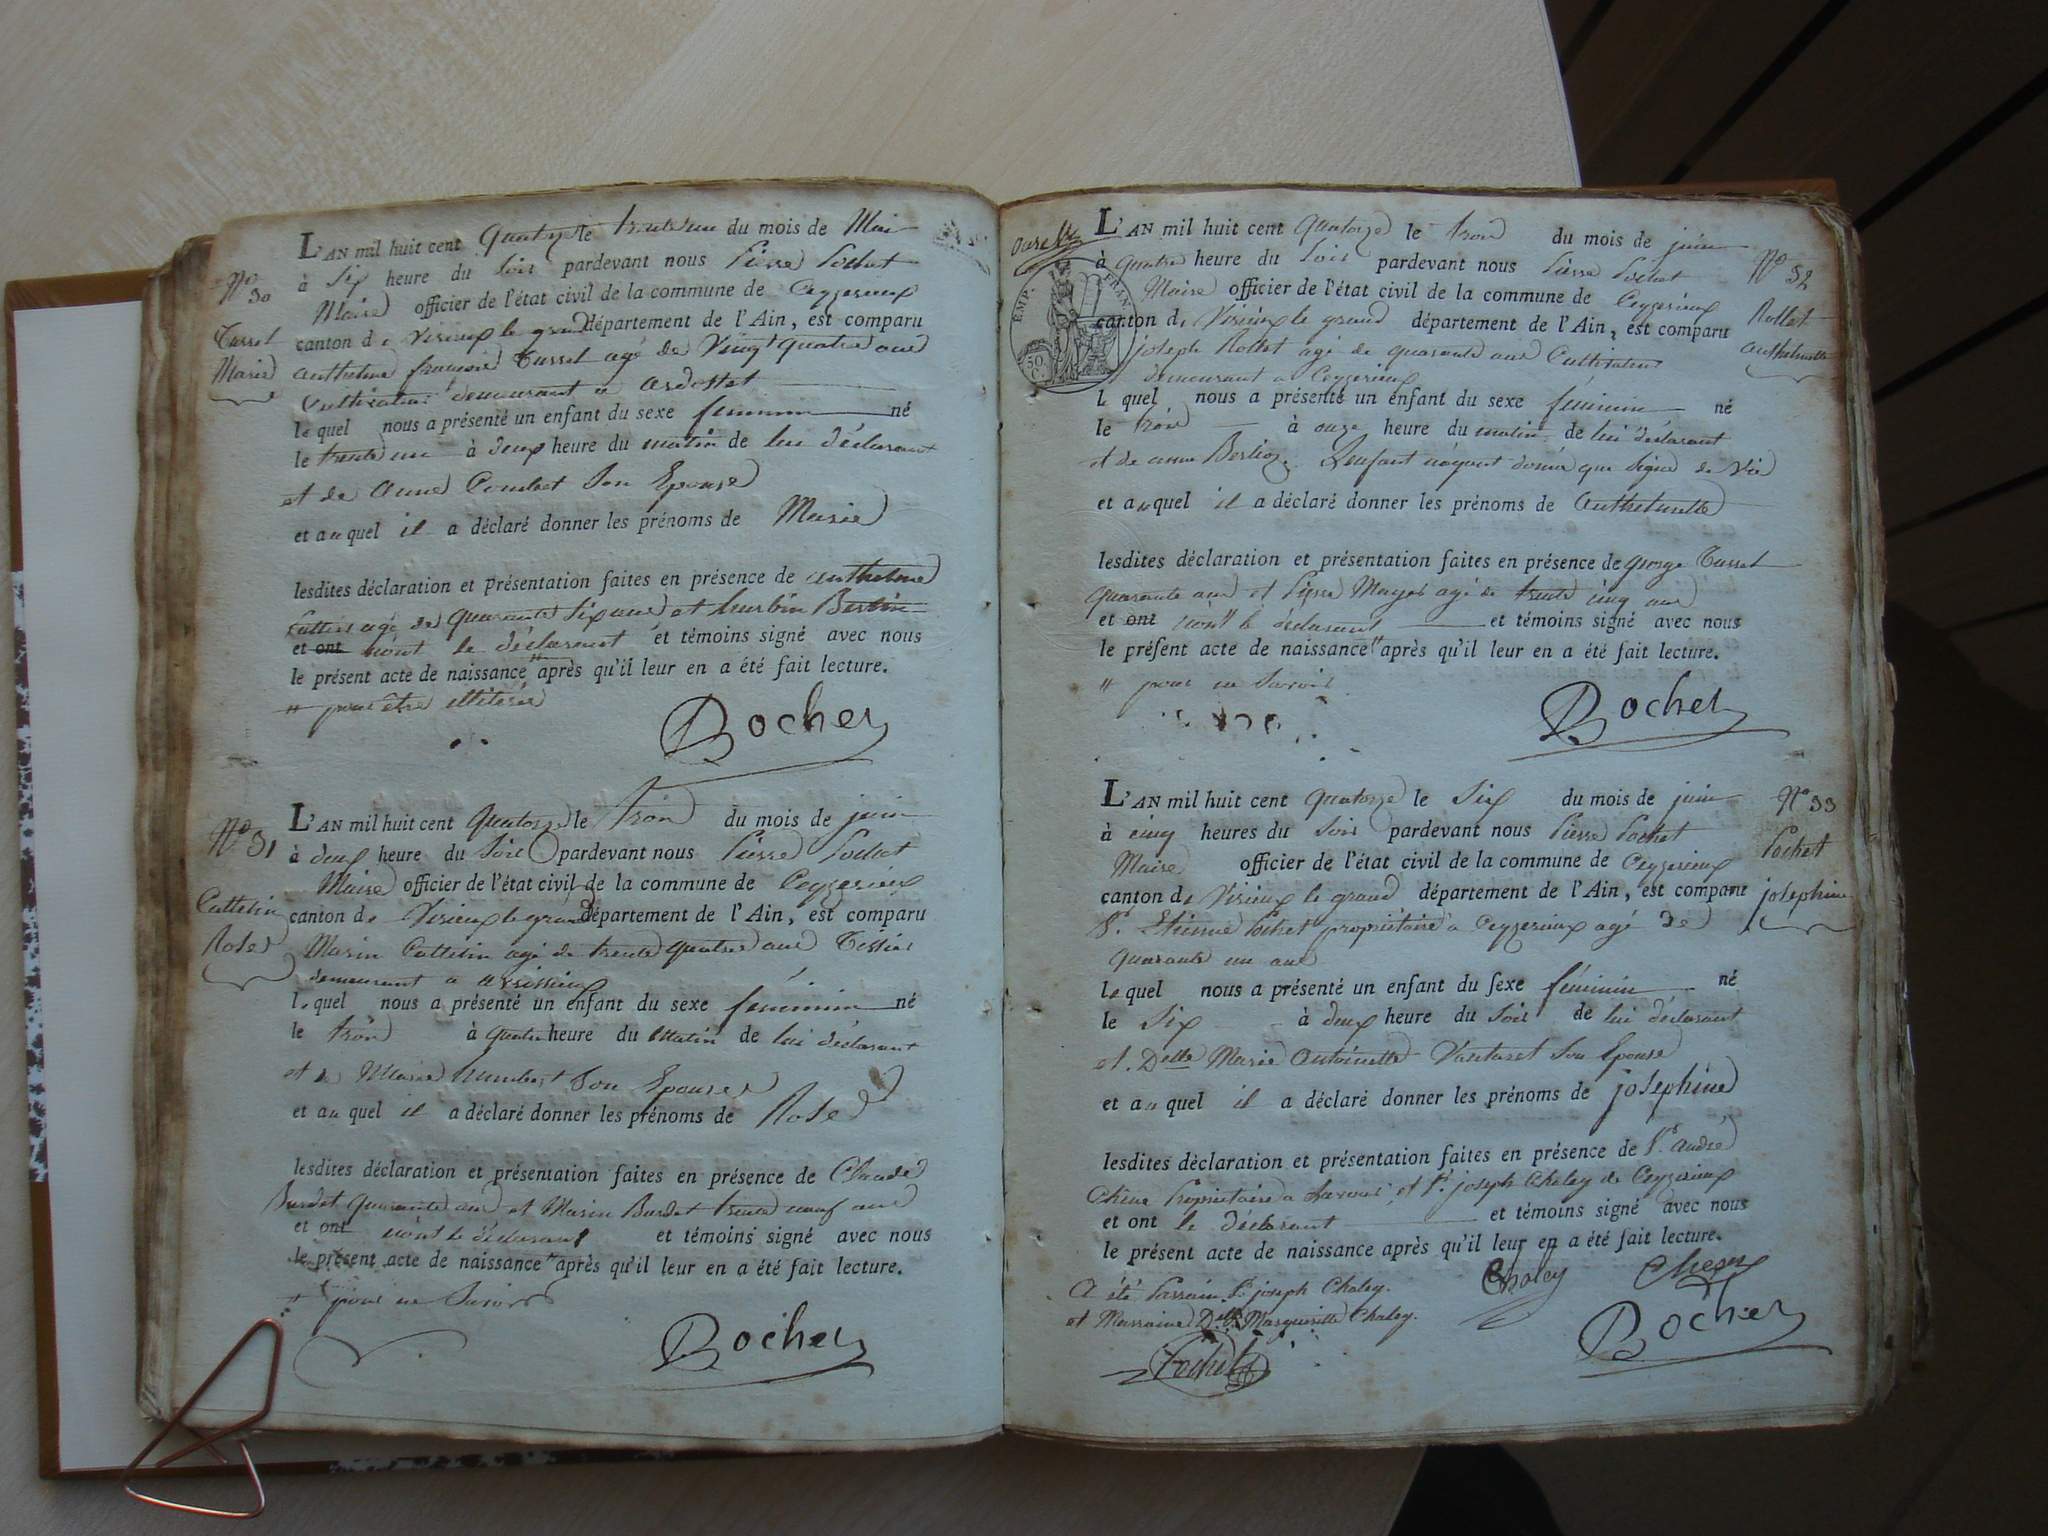 L'AN mil huit cent Quatorze le trente un du mois de Mai
à Six heure du Soir pardevant nous Pierre Pochet
Maire officier de l'état civil de la commune de Ceyzerieux
canton de Virieux le grand département de l'Ain, est comparu
anthelme françois Turret agé de Vingt quatre ans
Cultivateur demeurant a ardosset
lequel nous a présenté un enfant du sexe feminin né
le trente un à deux heure du matin de lui déclarant
et de anne Combet Son Epouse
et auquel il a déclaré donner les prénoms de Marie
lesdites déclaration et présentation faites en présence de anthelme
agé de Quarante Six ans et
et ont n'ont le déclarant et témoins signé avec nous
le présent acte de naissance " après qu'il leur en a été fait lecture.
" pour être illétérés
Pochet
N° 30
Turret
Marie
L'AN mil huit cent Quatorze le trois du mois de juin
à deux heure du Soir pardevant nous Pierre Pochet
Maire officier de l'état civil de la commune de Ceyzerieux
canton de Virieux le grand département de l'Ain, est comparu
Marin Cattelin agé de trente quatre ans Tissier
demeurant a avrissieux
lequel nous a présenté un enfant du sexe féminin né
le trois à quatre heure du matin de lui déclarant
et de Marie humbert Son Epouse
et auquel il a déclaré donner les prénoms de Rose
lesdites déclaration et présentation faites en présence de Claude
Burdet Quarante ans et Marin Burdet trente neuf ans
et ont n'ont le déclarant et témoins signé avec nous
le présent acte de naissance " après qu'il leur en a été fait lecture.
" pour ne Savoir
Pochet
N° 31
Cattelin
Rose
L'AN mil huit cent Quatorze le trois du mois de juin
à quatre heure du Soir pardevant nous Pierre Pochet
Maire officier de l'état civil de la commune de Ceyzerieux
canton de Virieux le grand département de l'Ain, est comparu
joseph Rollet agé de quarante ans Cultivateur
demeurant a Ceyzerieux
lequel nous a présenté un enfant du sexe féminin né
le trois à onze heure du matin de lui déclarant
et de anne Berlioz. L'enfant n'ayant donné que Signe de Vie
et auquel il a déclaré donner les prénoms de anthelmette
lesdites déclaration et présentation faites en présence de George Turret
Quarante ans et Pierre Mayet agé de trente cinq ans
et ont n'ont le déclarant et témoins signé avec nous
le présent acte de naissance " après qu'il leur en a été fait lecture.
" pour ne Savoir
Pochet
EMP. FRAN
50 C.
N° 32
Rollet
anthelmette
L'AN mil huit cent Quatorze le Six du mois de juin
à cinq heures du Soir pardevant nous Pierre Pochet
Maire officier de l'état civil de la commune de Ceyzerieux
canton de Virieux le grand département de l'Ain, est comparu
Sr. Etienne Pochet propriétaire a Ceyzerieux agé de
quarante un ans
lequel nous a présenté un enfant du sexe féminin né
le Six à deux heure du Soir de lui déclarant
et Delle Marie Antoinette Vantaret Son Epouse
et auquel il a déclaré donner les prénoms de joséphine
lesdites déclaration et présentation faites en présence de Sr. andré
Propriétaire a et Sr. joseph Chaley de Ceyzerieux
et ont le déclarant et témoins signé avec nous
le présent acte de naissance après qu'il leur en a été fait lecture.
A été Parrain Sr. joseph Chaley.
et Marraine Delle Margueritte Chaley.
Chaley
Pochet
Pochet
N° 33
Pochet
joséphine